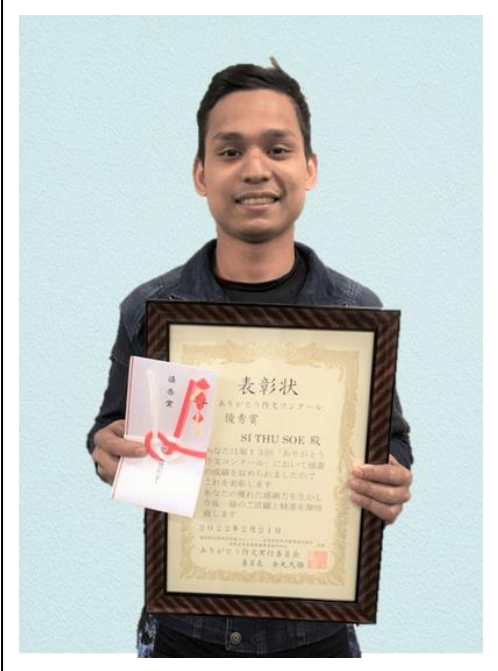 優秀賞
表彰状
ありがとう作文コンクール
優秀賞
SI THU SOE 殿
あなたは第13回「ありがとう
作文コンクール」において優秀
の成績を収められましたので
これを表彰します
あなたの優れた感謝力を生かし
今後一層のご活躍と精進を期待
致します
2022年2月21日
ありがとう作文実行委員会
委員長